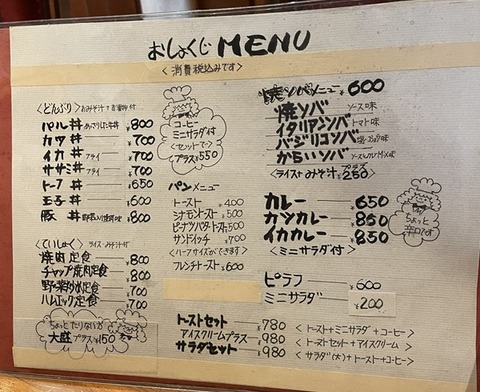 おしょくじ MENU
〈消費税込みです〉
〈どんぶり〉おみそ汁・お新香付
パル丼 あっさりした牛丼 ¥800
カツ丼 ¥700
イカ丼 フライ ¥700
ササミ丼 フライ ¥700
トーフ丼 ¥650
玉子丼 ¥600
豚丼 ¥800
〈ていしょく〉ライス・みそ汁付
焼肉定食 ¥800
チャップ焼肉定食 ¥800
野菜炒め定食 ¥700
ハムエッグ定食 ¥700
ちょっとたりない方
大盛プラス¥150
コーヒー
ミニサラダ付
〈セットで〉
プラス¥550
パンメニュー
トースト ¥400
シナモントースト ¥500
ピーナツバタートースト ¥500
サンドイッチ ¥700
〈ハーフサイズができます〉
フレンチトースト ¥600
焼ソバメニュー ¥600
焼ソバ ソース味
イタリアンソバ トマト味
バジリコンソバ
からいソバ
〈ライス+みそ汁 プラス ¥250〉
カレー ¥650
カツカレー ¥850
イカカレー ¥850
〈ミニサラダ付〉
ちょっと
辛口です
ピラフ ¥600
ミニサラダ ¥200
トーストセット ¥780 〈トースト+ミニサラダ+コーヒー〉
アイスクリームプラス ¥980 〈トーストセット+アイスクリーム〉
サラダセット ¥980 〈サラダ(大)+トースト+コーヒー〉